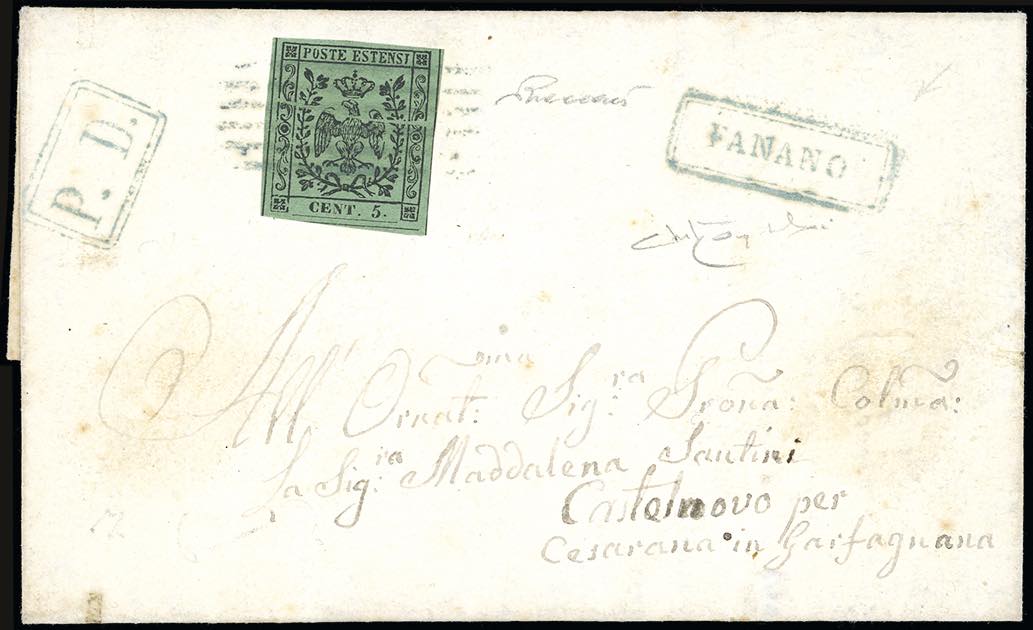 P. D.
POSTE ESTENSI
CENT. 5.
FANANO
All' Ornat:ma Sig:ra Pr̃ona: Colm̃a:
La Sig:ra Maddalena Santini
Castelnovo per
Cesarana in Garfagnana